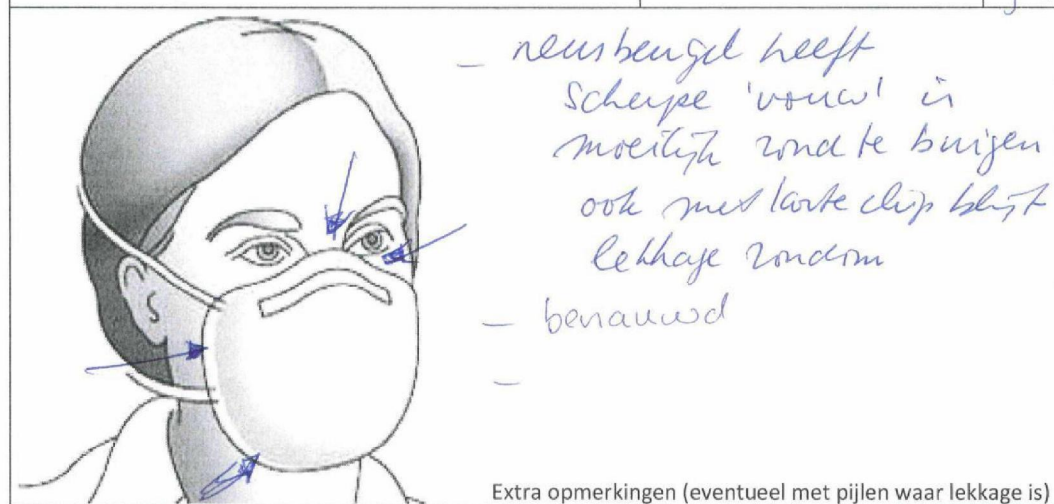 – neusbeugel heeft
scherpe 'vouw' is
moeilijk rond te buigen
ook met korte clip blijft
lekkage rondom
– benauwd
–
Extra opmerkingen (eventueel met pijlen waar lekkage is)